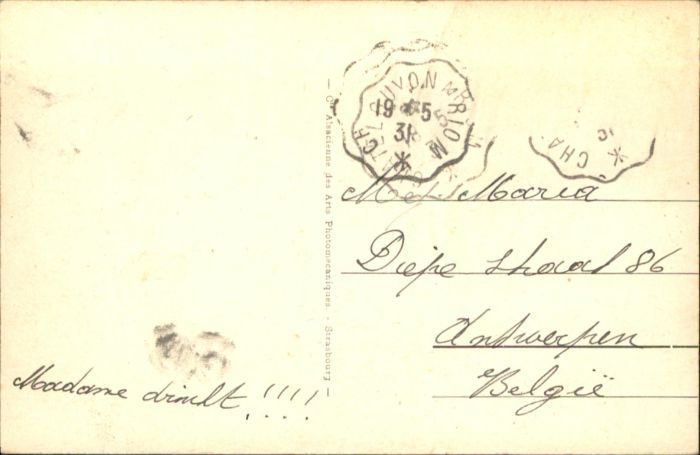 Madame drinkt !!!!
Cie Alsacienne des Arts Photomécaniques - Strasbourg
CHATEL-GUYON À RIOM
19 - 5
31
CHA
Mej Maria
Diepe straat 86
Antwerpen
België